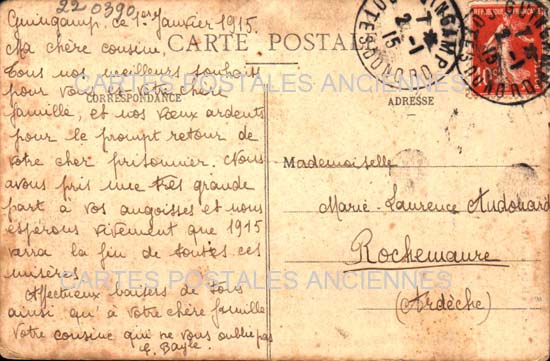 220390
Guingamp, ce 1er Janvier 1915.
Ma chère cousine,
CARTE POSTALE
Tous nos meilleurs souhaits
pour vous et votre chère
CORRESPONDANCE
ADRESSE
famille, et nos vœux ardents
pour le prompt retour de
votre cher prisonnier. Nous
avons pris une très grande
part à vos angoisses et nous
espérons vivement que 1915
verra la fin de toutes ces
misères.
Affectueux baisers de tous
ainsi qu'à votre chère famille
Votre cousine qui ne vous oublie pas
E. Bayle
Mademoiselle
Marie-Laurence Audouard
Rochemaure
(Ardèche)
GUINGAMP
COTES DU NORD
7
2-1
15
CARTES POSTALES ANCIENNES
CARTES POSTALES ANCIENNES